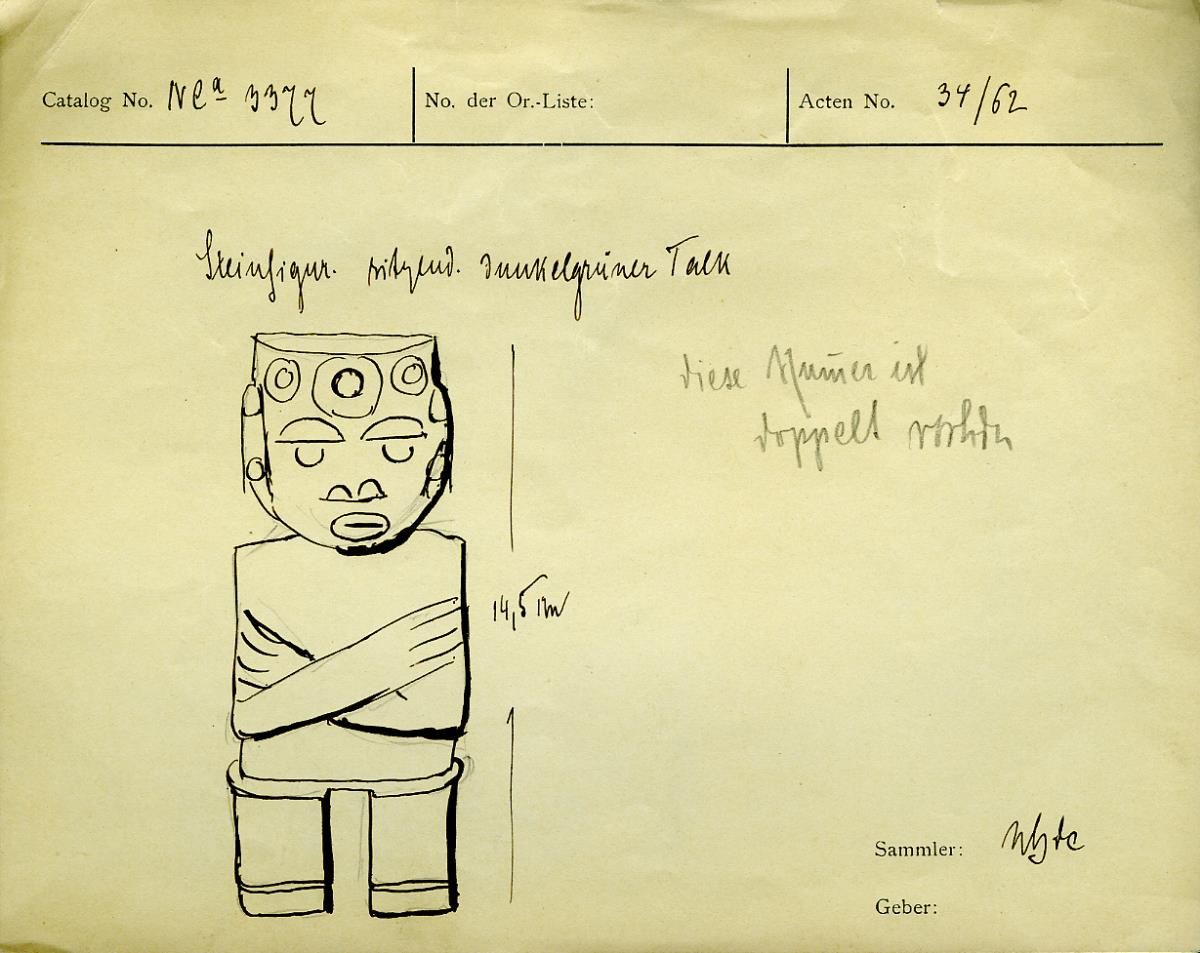 Catalog No. IV Ca 3377
No. der Or.-Liste:
Acten No. 34/62
Steinfigur. sitzend. dunkelgrüner Talk
diese Num̅er ist
doppelt vorhdn
14,5 cm
Sammler:
Geber: